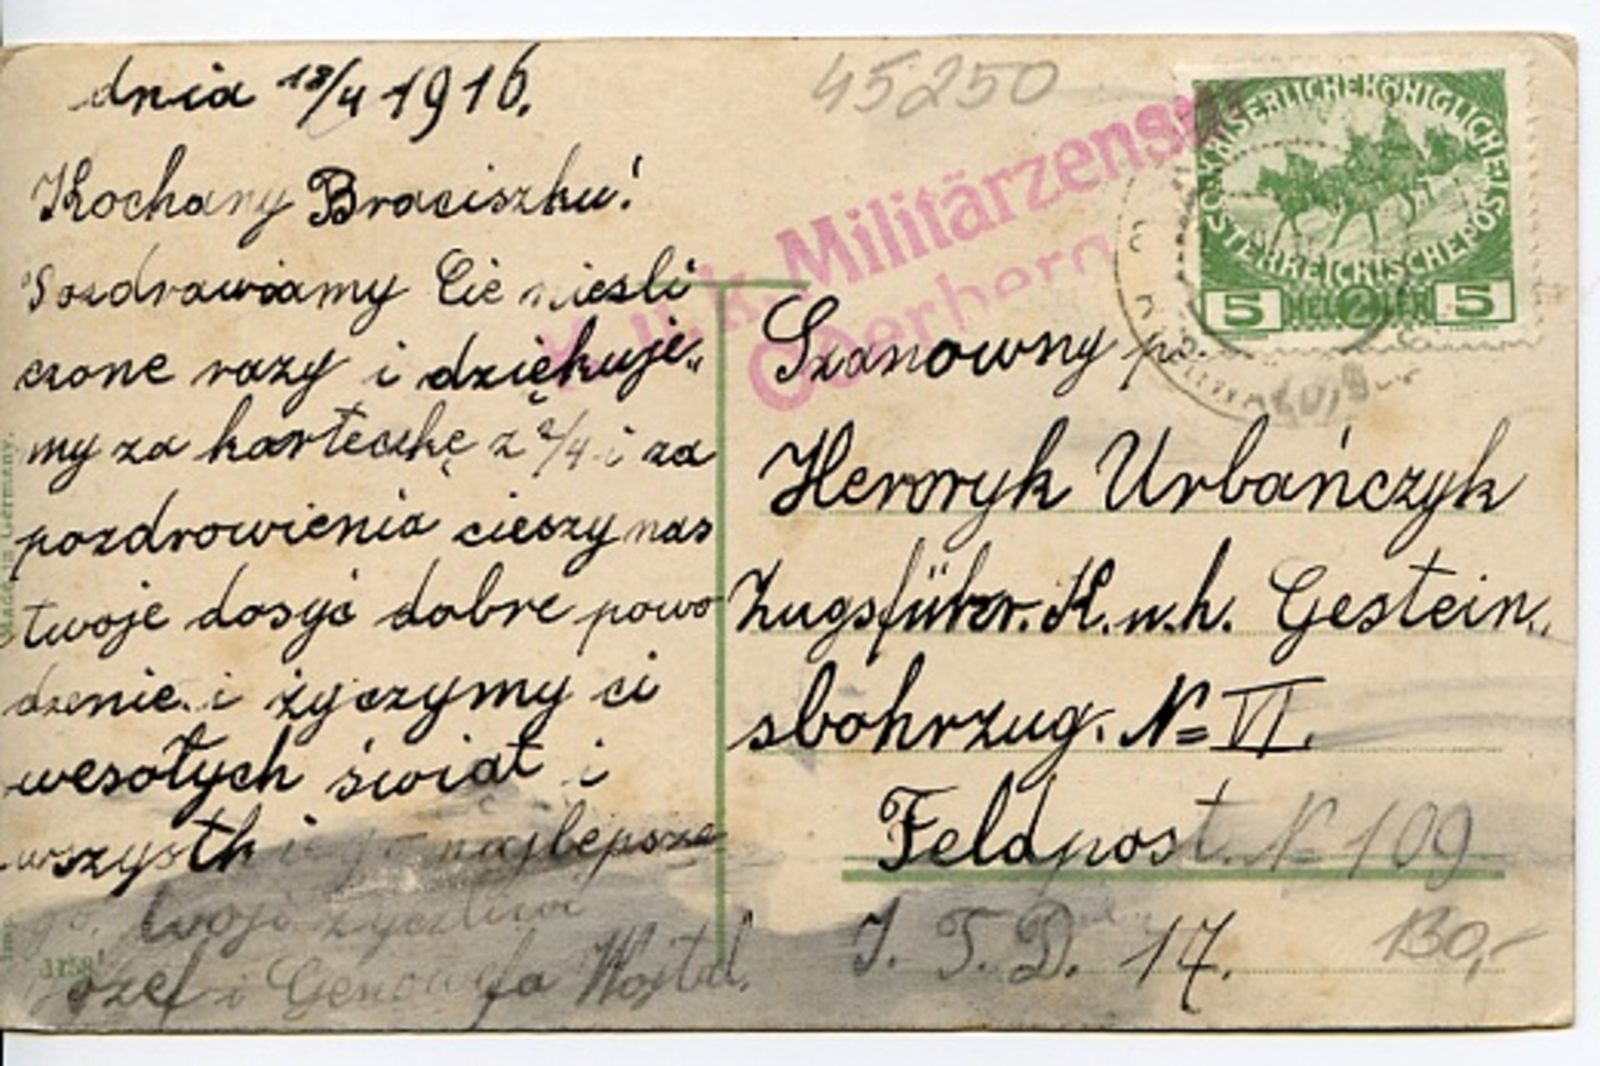 dnia 18/4 1916.
Kochany Braciszku!
Pozdrawiamy Cie niesli
czone razy i dziękuje„
my za karteczkę z 2/4 i za
pozdrowienia cieszy nas
twoje dosyć dobre powo
dzenie. i życzymy ci
wesołych świat i
wszystkiego najlepsze
go. twoji życzliwi
Józef i Genowefa Wojtal.
45250
K. u. k. Militärzensur
Oderberg
KAISERLICHEKÖNIGLICHE
ÖSTERREICHISCHEPOST
5 HEL 2 LER 5
Szanowny p.
Henryk Urbańczyk
Zugsführer. K. u. k. Gestein„
sbohrzug. N= VI.
Feldpost. N= 109
I. T. D. 17.
130,-
Made in Germany.